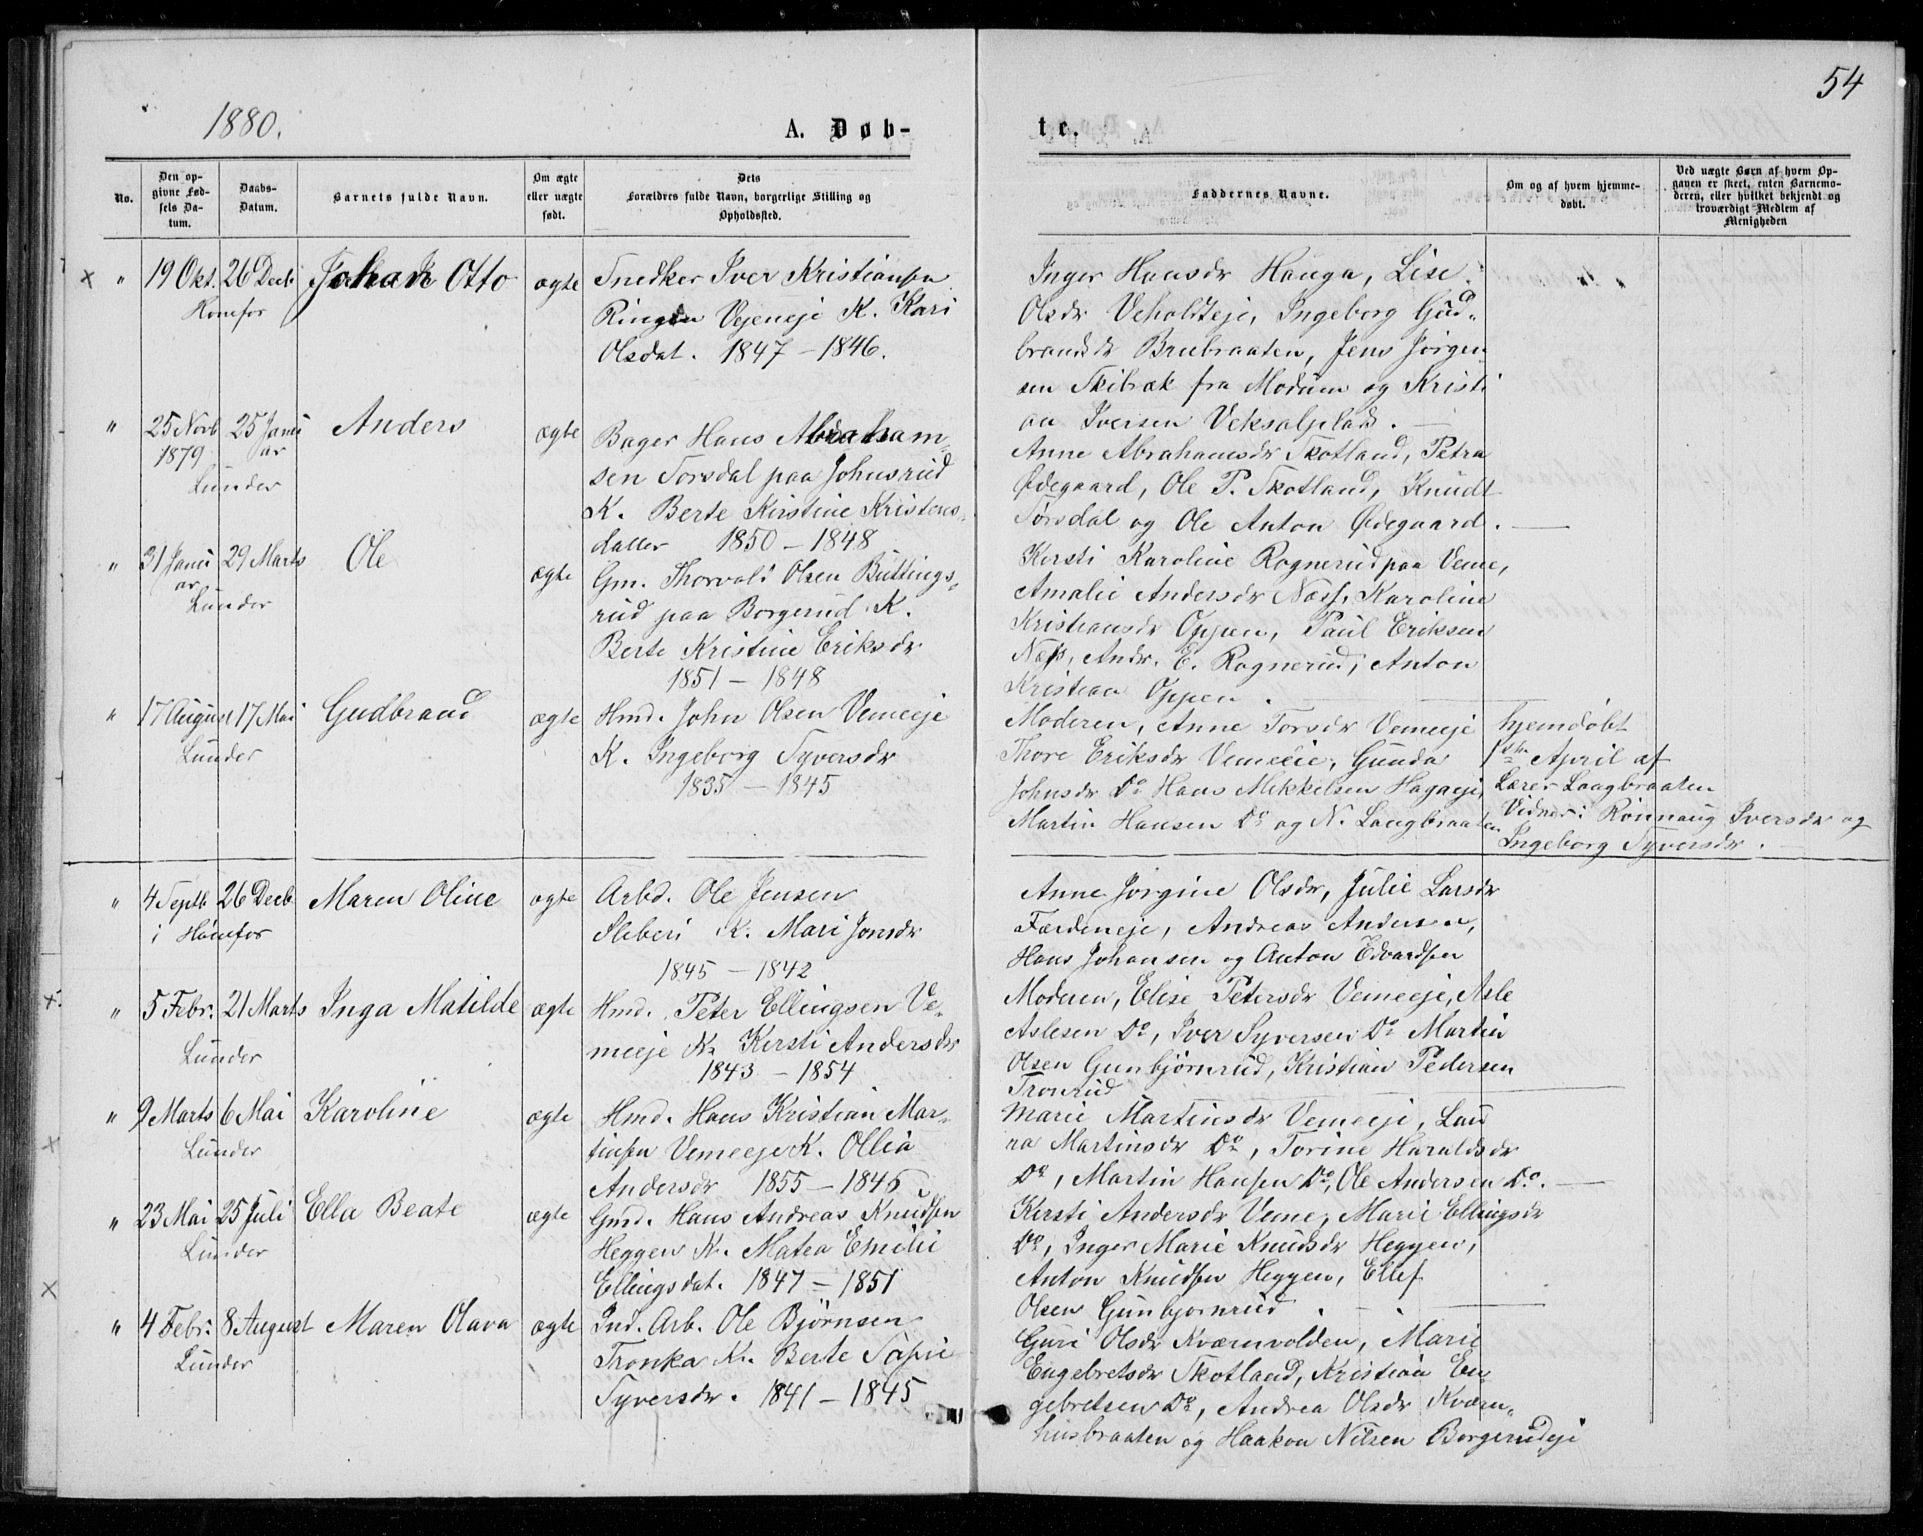 54
1880.
A. Døb-
te.
No.
Den op-
givne Fød-
sels Da-
tum.
Daabs-
Datum.
Barnets fulde Navn.
Om ægte
eller uægte
født.
Dets
Forældres fulde Navn, borgerlige Stilling og
Opholdssted.
Faddernes Navne.
Om og af hvem hjemme-
døbt.
Ved uægte Børn af hvem Op-
gaven er skeet, enten Barnemo-
deren, eller hvilket bekjendt og
troværdigt Medlem af
Menigheden
x " 19 Okt. 26 Decb Johan Otto ægte
Honefos
Snedker Iver Kristiansen
Ringen Vejeneje K. Kari
Olsdat. 1847 - 1846.
Inger Hansdr Hauga, Lise
Olsdr Veholdteje, Ingeborg Gud-
brandsdr Brubraaten, Jens Jörgen
sen Skibræk fra Modum og Kristi
an Iversen Veksalplads.
" 25 Novb 25 Janu Anders ægte
1879 ar
Lunder
Bager Hans Abraham-
sen Torsdal paa Johnsrud
K. Berte Kirstine Kristens-
datter 1850 - 1848
Anne Abrahamsdr Skotland, Petra
Ødegaard, Ole P. Skotland, Knudt
Torsdal og Ole Anton Ødegaard.
" 31 Janu 29 Marts Ole ægte
ar
Lunder
Gm. Thorvald Olsen Buttings-
rud paa Borgerud K.
Berte Kristine Eriksdr
1851 - 1848
Kersti Karoline Rognerud paa Veme,
Amalie Andersdr Næss, Karoline
Kristiansdr Oppen, Paul Eriksen
Næss, Andr. E. Rognerud, Anton
Kristian Oppen.
" 17 August 17 Mai Gudbrand ægte
Lunder
Hmd. John Olsen Vemeeje
K. Ingeborg Syversdr
1835 - 1845
Moderen, Anne Torsdr Vemeeje
Thore Eriksdr Vemeeie, Gunda
Johnsdr Do Hans Mikkelsen Hagaeje,
Martin Hansen Do og N. Langbraaten
hjemdöbt
1ste April af
Lærer Langbraaten
Vidner: Rönnaug Iversdr og
Ingeborg Syversdr.
" 4 Septb 26 Decb Maren Oline ægte
i Hönefos
Arbd. Ole Jensen
Sliberi K. Mari Jonsdr
1845 - 1842
Anne Jörgine Olsdr, Julie Larsdr
Færdeneje, Andreas Andersen,
Hans Johansen og Anton Edvardsen
x " 5 Febr. 21 Marts Inga Matilde ægte
Lunder
Hmd. Peter Ellingsen Ve-
meeje K. Kersti Andersdr
1843 - 1854
Moderen, Elise Petersdr Vemeeje, Asle
Aslesen Do, Iver Syversen Do Martin
Olsen Gunbjörnrud, Kristian Pedersen
Tronrud
x " 9 Marts 6 Mai Karoline ægte
Lunder
Hmd. Hans Kristian Mar-
tinsen Vemeeje K. Ollia
Andersdr 1855 - 1846
Marie Martinsdr Vemeeje, Lau
ra Martinsdr Do, Torine Haraldsdr
Do, Martin Hansen Do, Ole Andersen Do.
x " 23 Mai 25 Juli Ella Beate ægte
Lunder
Gmd. Hans Andreas Knudsen
Heggen K. Matea Emilie
Ellingsdat. 1847 - 1851
Kersti Andersdr Veme, Marie Ellingsdr
Do, Inger Marie Knudsdr Heggen,
Anton Knudsen Heggen, Ellef
Olsen Gunbjornrud.
" 4 Febr. 8 August Maren Olava ægte
Lunder
Ind. Arb. Ole Björnsen
Tronka K. Berte Sofie
Syversdr. 1841 - 1845
Guri Olsdr Kværnvolden, Marie
Engebretsdr Skotland, Kristian En-
gebretsen Do, Andrea Olsdr Kværn-
husbraaten og Haakon Nilsen Borgerudeje